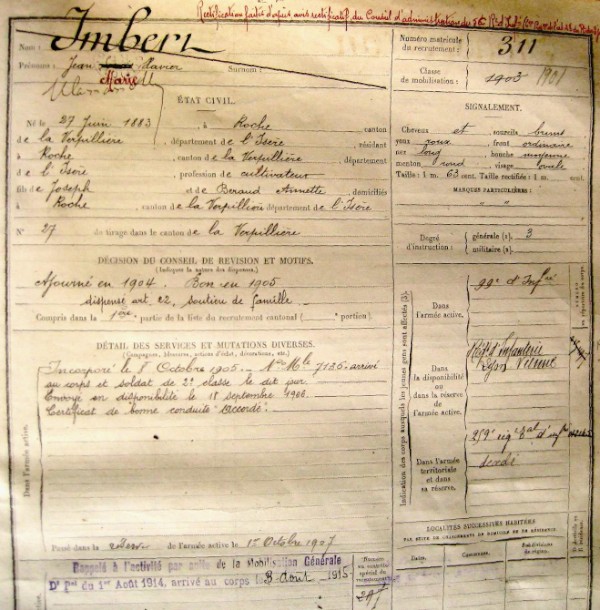 Rectification faite d'après avis rectificatif du Conseil d'administration du
Nom : Imbert
Prénoms : Jean Marie Xavier Surnom :
Numéro matricule
du recrutement : 311
Classe
de mobilisation : 1903 1901
ÉTAT CIVIL.
Né le 27 Juin 1883, à Roche, canton
de la Verpillière, département de l'Isère, résidant
à Roche, canton de la Verpillière, département
de l'Isère, profession de cultivateur
fils de Joseph et de Beraud Annette, domiciliés
à Roche, canton de la Verpillière, département de l'Isère
N° 27 de tirage dans le canton de la Verpillière
SIGNALEMENT.
Cheveux et sourcils bruns
yeux roux, front ordinaire
nez long, bouche moyenne
menton rond, visage ovale
Taille : 1 m. 63 cent. Taille rectifiée : 1 m. cent.
MARQUES PARTICULIÈRES :
" "
Degré
d'instruction :
générale (1). 3
militaire (2).
DÉCISION DU CONSEIL DE REVISION ET MOTIFS.
(Indiquer la nature des dispenses.)
Ajourné en 1904. Bon en 1905
dispensé art. 22, soutien de famille
Compris dans la 1ère partie de la liste du recrutement cantonal ( portion).
DÉTAIL DES SERVICES ET MUTATIONS DIVERSES.
(Campagnes, blessures, actions d'éclat, décorations, etc.)
Incorporé le 8 Octobre 1905. N° Mle 7135 arrivé
au corps et soldat de 2e classe le dit jour
Envoyé en disponibilité le 18 septembre 1906.
Certificat de bonne conduite "Accordé".
Dans l'armée active.
Passé dans la réserve de l'armée active le 1er Octobre 1907
Rappelé à l'activité par suite de la Mobilisation Générale
Dt Pal du 1er Août 1914, arrivé au corps le 3 août 1915
Indication des corps auxquels les jeunes gens sont affectés (3).
Dans
l'armée active.
99e d'Infie
Dans
la disponibilité
ou dans la réserve
de l'armée
active.
Régt d'infanterie
Lyon Vienne
Dans l'armée
territoriale
et dans
sa réserve.
LOCALITÉS SUCCESSIVES HABITÉES
PAR SUITE DE CHANGEMENTS DE DOMICILE OU DE RÉSIDENCE.
Dates. Communes. Subdivisions
de région.
Numéro
au contrôle
spécial du